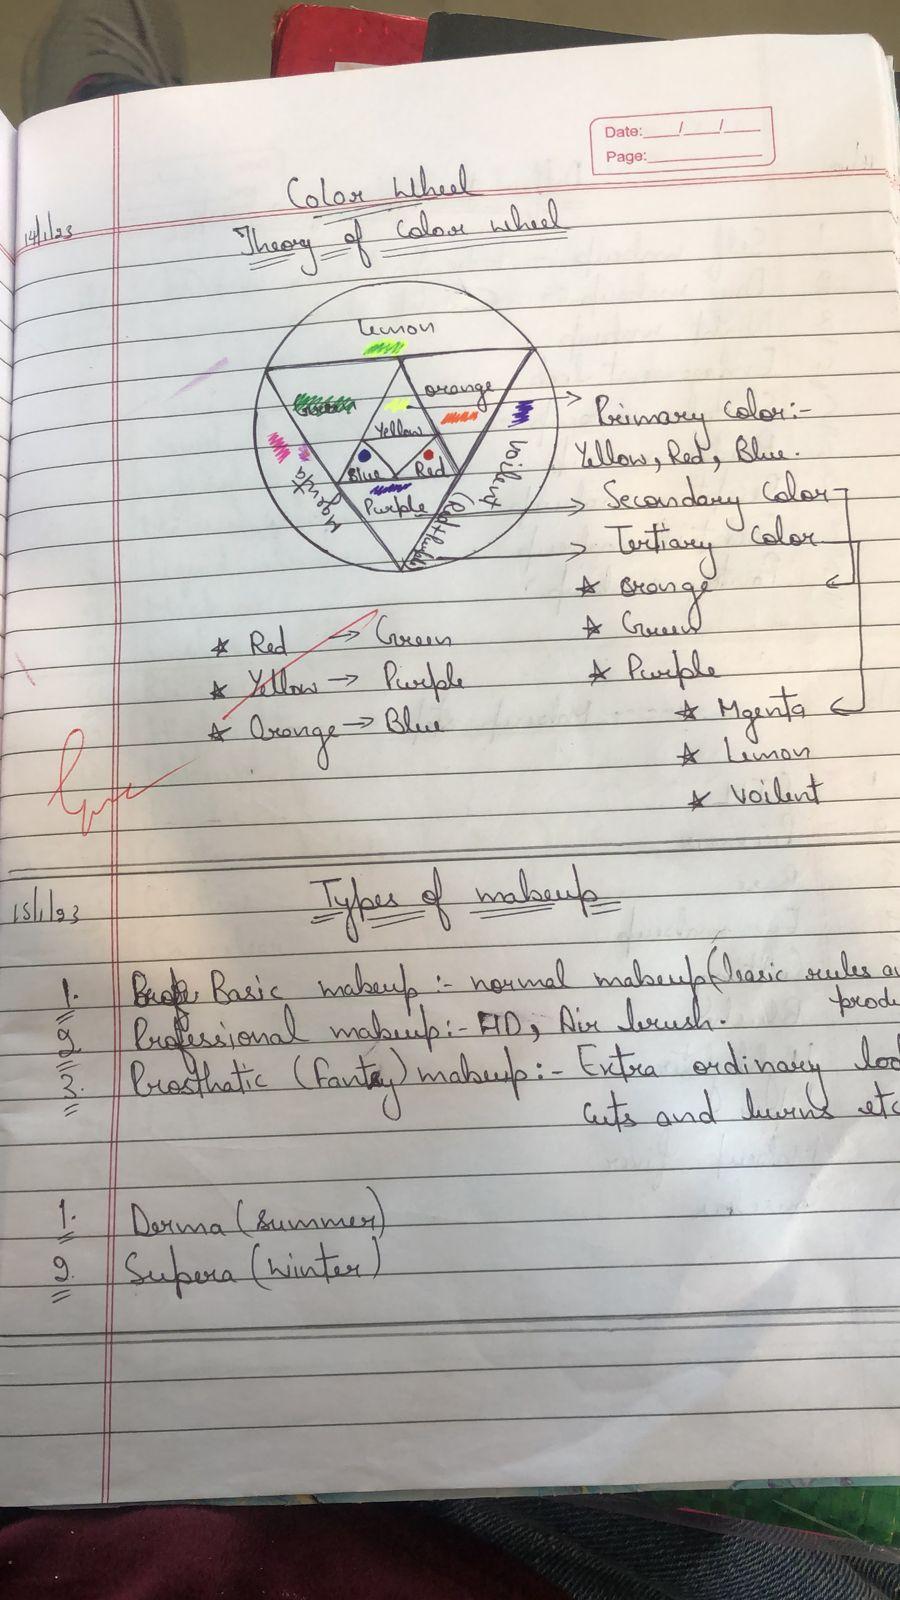 Date:___/___/___
Page:___
Color Wheel
14/1/23
Theory of Color wheel
Lemon
Green
orange
Yellow
Blue
Red
Purple
Mgenta
Voilent
(Red+Purple)
Primary Color:-
Yellow, Red, Blue.
Secondary Color
Tertiary Color
☆ Orange
☆ Green
☆ Purple
☆ Mgenta
☆ Lemon
☆ Voilent
☆ Red → Green
☆ Yellow → Purple
☆ Orange → Blue
15/1/23
Types of makeup
1. Basic makeup :- normal makeup (basic rules
produ
2. Professional makeup:- HD, Air brush.
3. Prosthatic (fantsy) makeup:- Extra ordinary loo
Cuts and burns etc
1. Derma (summer)
2. Supera (winter)